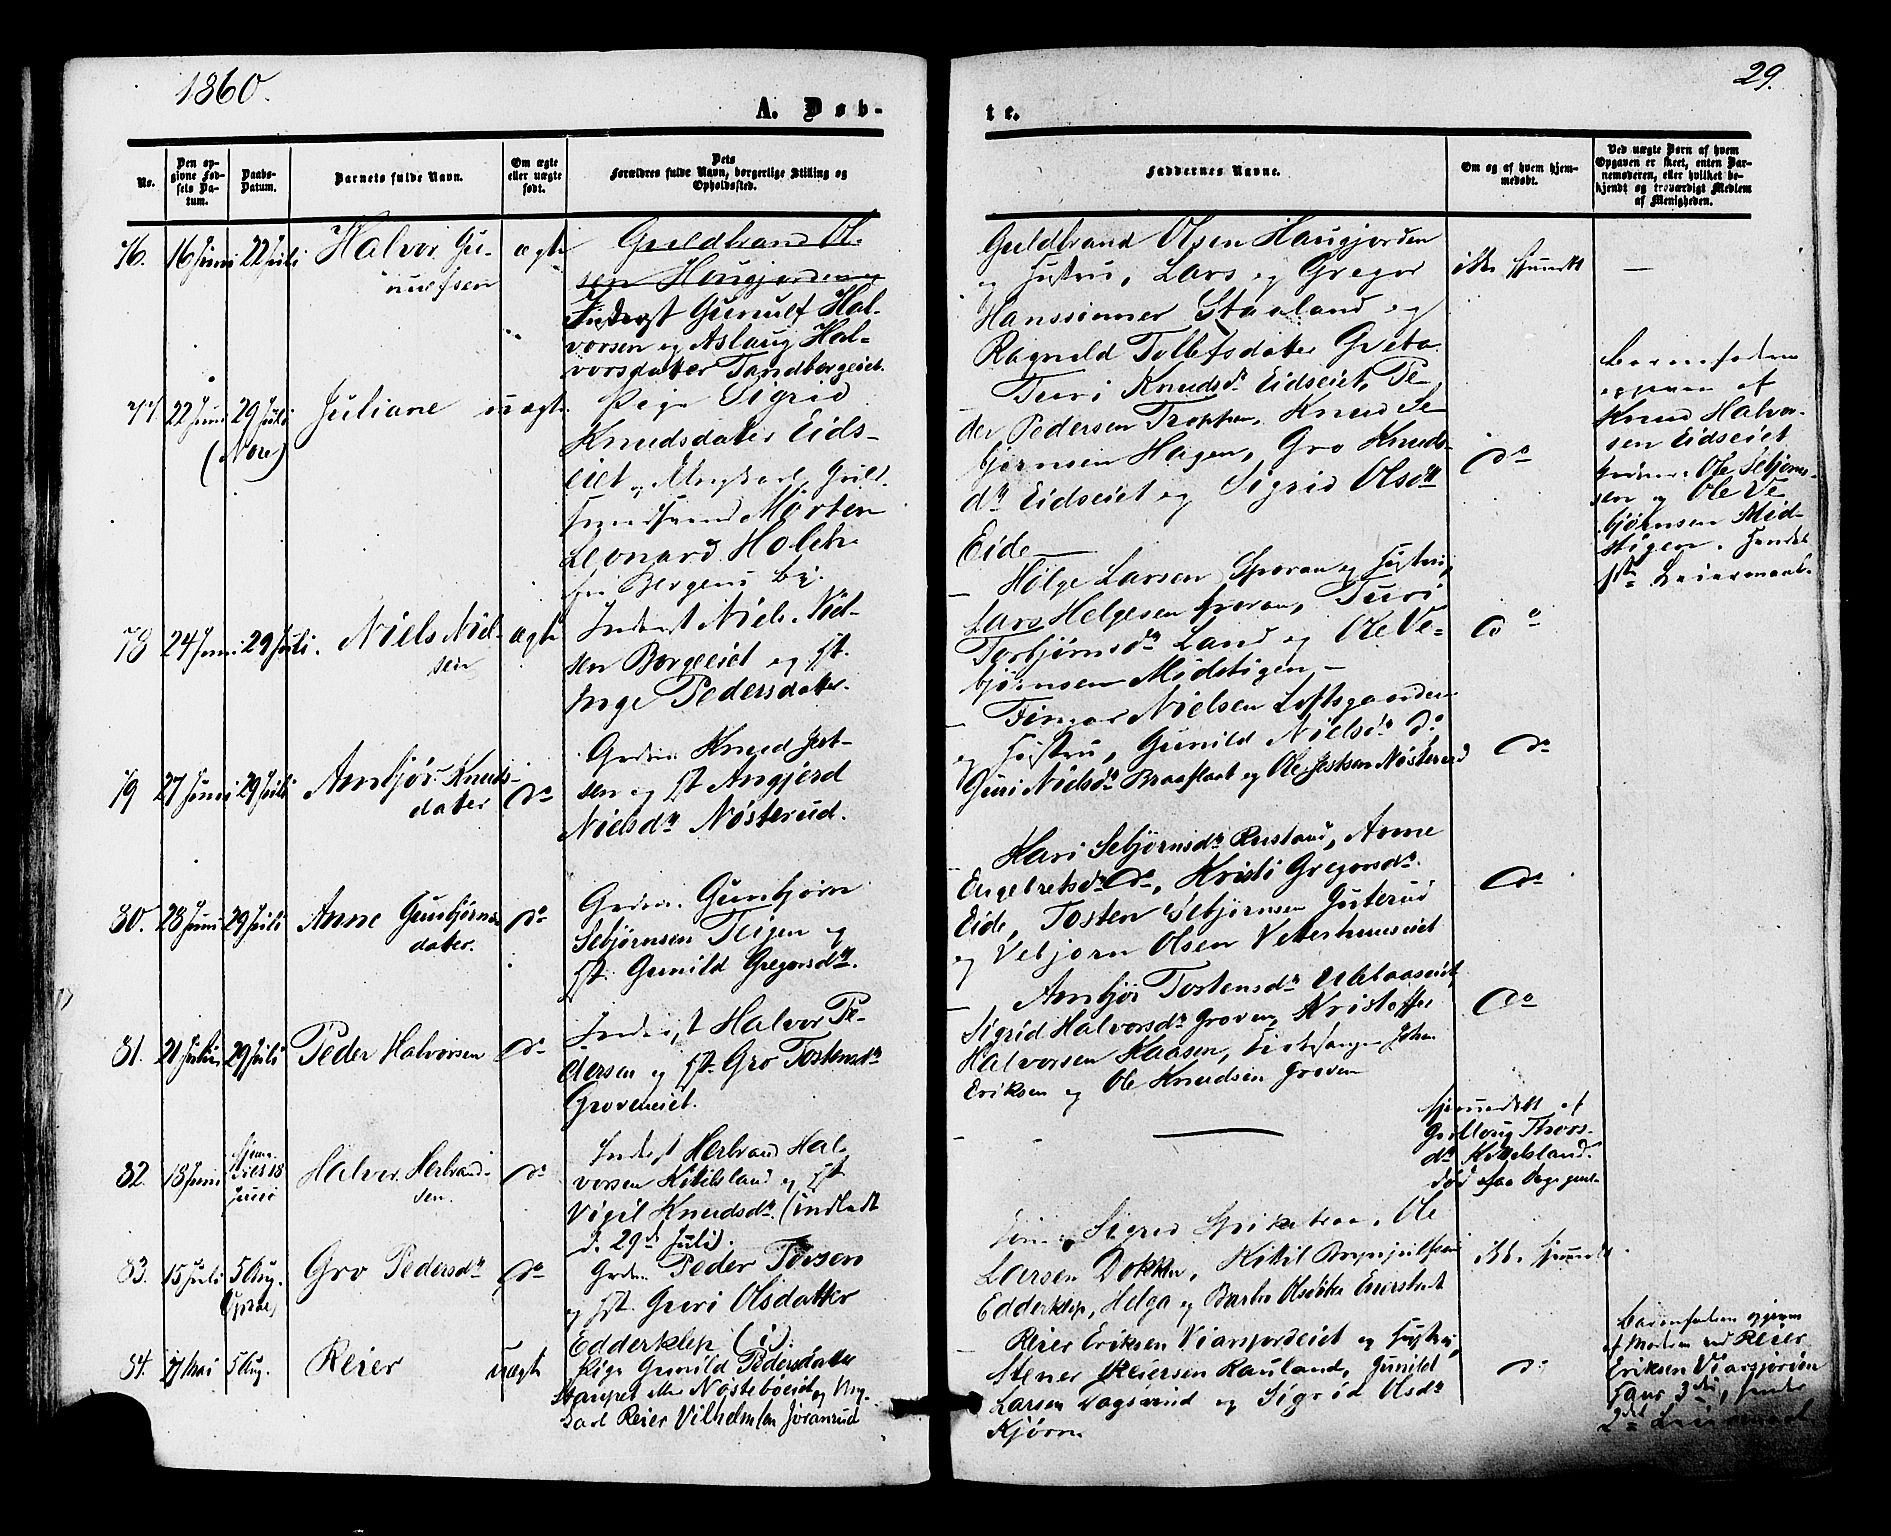 1860.
29.
A. Døb-
te.
No.
Den op-
givne Fød-
sels Da-
tum.
Daabs-
Datum.
Barnets fulde Navn.
Om ægte
eller uægte
født.
Dets
Forældres fulde Navn, borgerlige Stilling og
Opholdssted.
Faddernes Navne.
Om og af hvem hjem-
medøbt.
Ved uægte Børn af hvem
Opgaven er skeet, enten Bar-
nemoderen, eller hvilket be-
kjendt og troværdigt Medlem
af Menigheden.
76. 16 Juni 22 Juli Halvor Gu-
nulfsen
ægte
Guldbrand Ol-
sen Haugjorden og
Inderst Gunulf Hal-
vorsen og Aslaug Hal-
vorsdatter Tandbergeiet.
Guldbrand Olsen Haugjorden
og Hustru, Lars og Gregor
Hanssønner Staaland og
Ragnild Tollefsdatter Gveto
ikke hjemdt
—
77 22 Juni 29 Juli
(Nore)
Juliane uægte
Pige Sigrid
Knudsdatter Eids-
eiet og Ungkarl
Morten
Leonard Holch
fra Bergens By.
— Turi Knudsdr Eidseiet, Pe-
der Pedersen Troppen, Knud Se-
bjørnsen Hagen, Gro Knuds-
dr Eidseiet og Sigrid Olsdtr
Eide —
do
Barnefaderen
opgiven af
Knud Halvor-
sen Eidseiet
Ole Sebjørns-
sen og Ole Ve-
bjørnsen Mid-
stigen.
1ste Leiermaal.
78 24 Juni 29 Juli. Niels Niel-
sen
ægte
Inderst Niels Niel-
sen Borgeeiet og Hst.
Inge Pedersdatter.
— Helge Larsen Sporan og Hustru,
Lars Helgesen Sporan, Turi
Torbjørnsdr Land og Ole Ve-
bjørnsen Midstigen —
do
79 27 Juni 29 Juli Ambjør Knuds-
datter
do
Grdm. Knud Jest-
sen og Hst Angjerd
Nielsdr Nøsterud.
— Fingar Nielsen Loftsgaarden
og Hustru, Gunild Nielsdr do
Guri Nielsdr Braaflaat og Ole Jestsen Nøsterud
do
80. 28 Juni 29 Juli Anne Gunbjørns-
datter.
do
Grdm. Gunbjørn
Sebjørnsen Teigen og
Hst. Gunild Gregorsdr.
Kari Sebjørnsdr Rustand, Anne
Engebretsdr do, Kristi Gregorsdr.
Eide, Tosten Sebjørnsen Juterud
og Vebjørn Olsen Veterhuuseiet
do
81. 21 Juni 29 Juli Peder Halvorsen do
Inderst Halvor Pe-
dersen og Hst. Gro Tostensdr
Groveneiet.
— Ambjør Tostensdr Ulelaaseiet,
Sigrid Halvorsdr Groven, Kristoffer
Halvorsen Kaasen, Kirkesanger Johan
Eriksen og Ole Knudsen Groven
do
82. 18 Juni hjemme-
døbt 18
Juni
Halvor Herbrand-
sen.
do
Inderst Herbrand Hal-
vorsen Kittilsland og Hst
Vigil Knudsdr. (indladt
d. 29de Juli).
—
hjemmedøbt af
Gullaug Thors-
dr Kittilsland.
død paa Dage gml.
83. 15 Juli 5 Aug.
(Opdal)
Gro Pedersdr do
Grdm. Peder Torsen
og Hst. Guri Olsdatter
Edderklep (i).
Sigrid Spikebraa, Ole
Larsen Dokken, Kittil Brynjulfsen
Edderklep, Helga og Barbo Olsdøtre Enerstvet
ikke hjemmedt
84. 27 Mai 5 Aug. Reier uægte
Pige Gunild Pedersdatter
Nøstebøeiet og Ung-
karl Reier Vilhelmsen Jøranrud
— Reier Eriksen Viangjordeiet og Hustru,
Stener Reiersen Rauland, Gunild
Larsen Dagsvind og Sigrid Olsdr
Kjørn
do
Barnefaderen opgiven
af Moderen ved Reier
Eriksen Viangjorden
Fars 3die,
2det Leiermaal